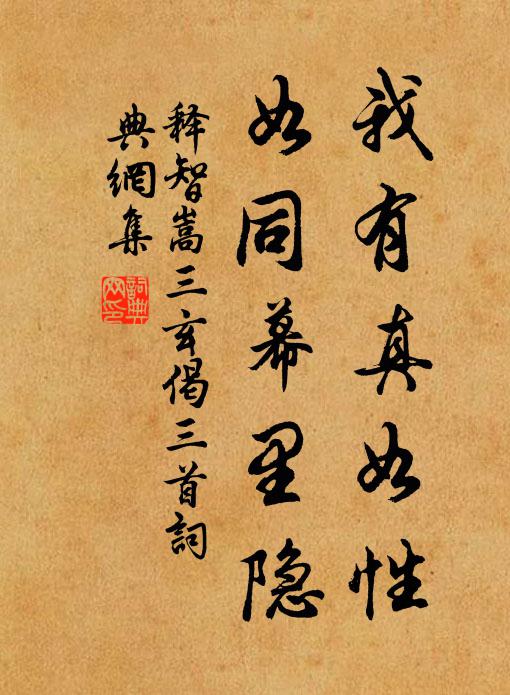 我有真如性
如同幕里隐
释智嵩三玄偈三首詞
典網集
詞典网印